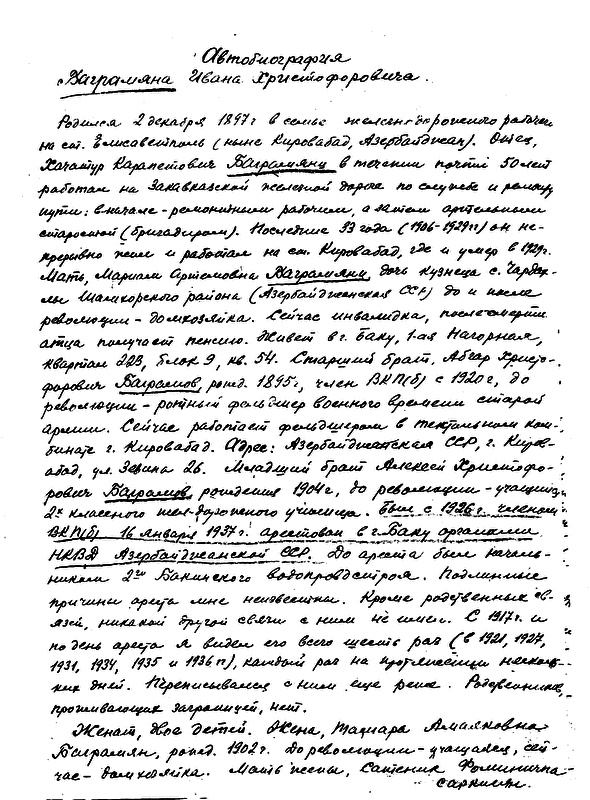 Автобиография
Баграмяна Ивана Христофоровича.
Родился 2 декабря 1897 г в семье железнодорожного рабочего
на ст. Елисаветполь (ныне Кировабад, Азербайджан). Отец,
Хачатур Карапетович Баграмянц в течении почти 50 лет
работал на Закавказской железной дороге по службе и ремонту
пути: вначале - ремонтным рабочим, а затем артельным
старостой (бригадиром). Последние 33 года (1906-1929 гг) он не-
прерывно жил и работал на ст. Кировабад, где и умер в 1929 г.
Мать, Мариам Артемовна Баграмянц, дочь кузнеца с. Чардах-
лы Шамхорского района (Азербайджанская ССР) до и после
революции - домхозяйка. Сейчас инвалидка, после смерти
отца получает пенсию. Живет в г. Баку, 1-ая Нагорная,
квартал 223, блок 9, кв. 54. Старший брат, Абгар Христо-
форович Баграмов, рожд. 1895 г, член ВКП(б) с 1920 г, до
революции - ротный фельдшер военного времени старой
армии. Сейчас работает фельдшером в текстильном ком-
бинате г. Кировабад. Адрес: Азербайджанская ССР, г. Киров-
абад, ул. Зевина 26. Младший брат Алексей Христофо-
рович Баграмов, рождения 1904 г, до революции - учащийся
2х классного жел-дорожного училища. Был с 1926 г. членом
ВКП(б). 16 января 1937 г. арестован в г. Баку органами
НКВД Азербайджанской ССР. До ареста был началь-
ником 2го Бакинского водопроводстроя. Подлинные
причины ареста мне неизвестны. Кроме родственных св-
язей, никакой другой связи с ним не имел. С 1917 г. и
по день ареста я видел его всего шесть раз (в 1921, 1927,
1931, 1934, 1935 и 1936 гг), каждый раз на протяжении несколь-
ких дней. Переписывался с ним еще реже. Родственников,
проживающих заграницей, нет.
Женат, двое детей. Жена, Тамара Амаяковна
Баграмян, рожд. 1902 г. До революции - учащаяся, сей-
час - домхозяйка. Мать жены, Сатеник Фоминична
Саркисян.